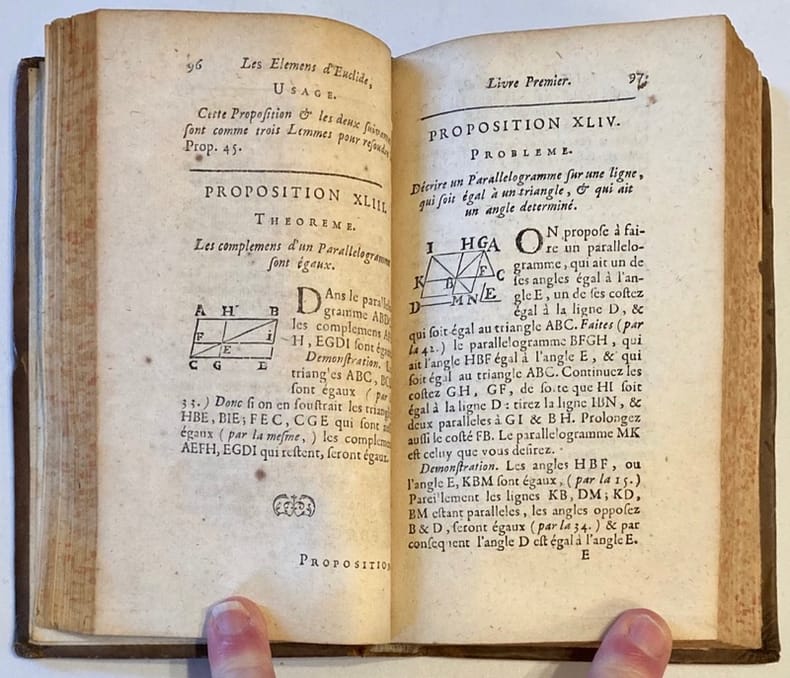 96 Les Elemens d'Euclide,
USAGE.
Cette Proposition & les deux suivan
sont comme trois Lemmes pour resoudre
Prop. 45.
PROPOSITION XLIII.
THEOREME.
Les complemens d'un Parallelogramme
sont égaux.
A H B
F I
E
C G E
DAns le paral
gramme ABD
les complemens A
H, EGDI sont éga
Demonstration. L
triangles ABC, BC
sont égaux (par
33.) Donc si on en soustrait les triang
HBE, BIE; FEC, CGE qui sont
égaux (par la mesme,) les complem
AEFH, EGDI qui restent, seront égaux.
PROPOSITIO
Livre Premier. 97
PROPOSITION XLIV.
PROBLEME.
Décrire un Parallelogramme sur une ligne,
qui soit égal à un triangle, & qui ait
un angle determiné.
I H G A
K B F C
D M N E
ON propose à fai-
re un parallelo-
gramme, qui ait un de
ses angles égal à l'an-
gle E, un de ses costez
égal à la ligne D, &
qui soit égal au triangle ABC. Faites (par
la 42.) le parallelogramme BFGH, qui
ait l'angle HBF égal à l'angle E, & qui
soit égal au triangle ABC. Continuez les
costez GH, GF, de sorte que HI soit
égal à la ligne D: tirez la ligne IBN, &
deux paralleles à GI & BH. Prolongez
aussi le costé FB. Le parallelogramme MK
est celuy que vous desirez.
Demonstration. Les angles HBF, ou
l'angle E, KBM sont égaux, (par la 15.)
Pareillement les lignes KB, DM; KD,
BM estant paralleles, les angles opposez
B & D, seront égaux (par la 34.) & par
consequent l'angle D est égal à l'angle E.
E